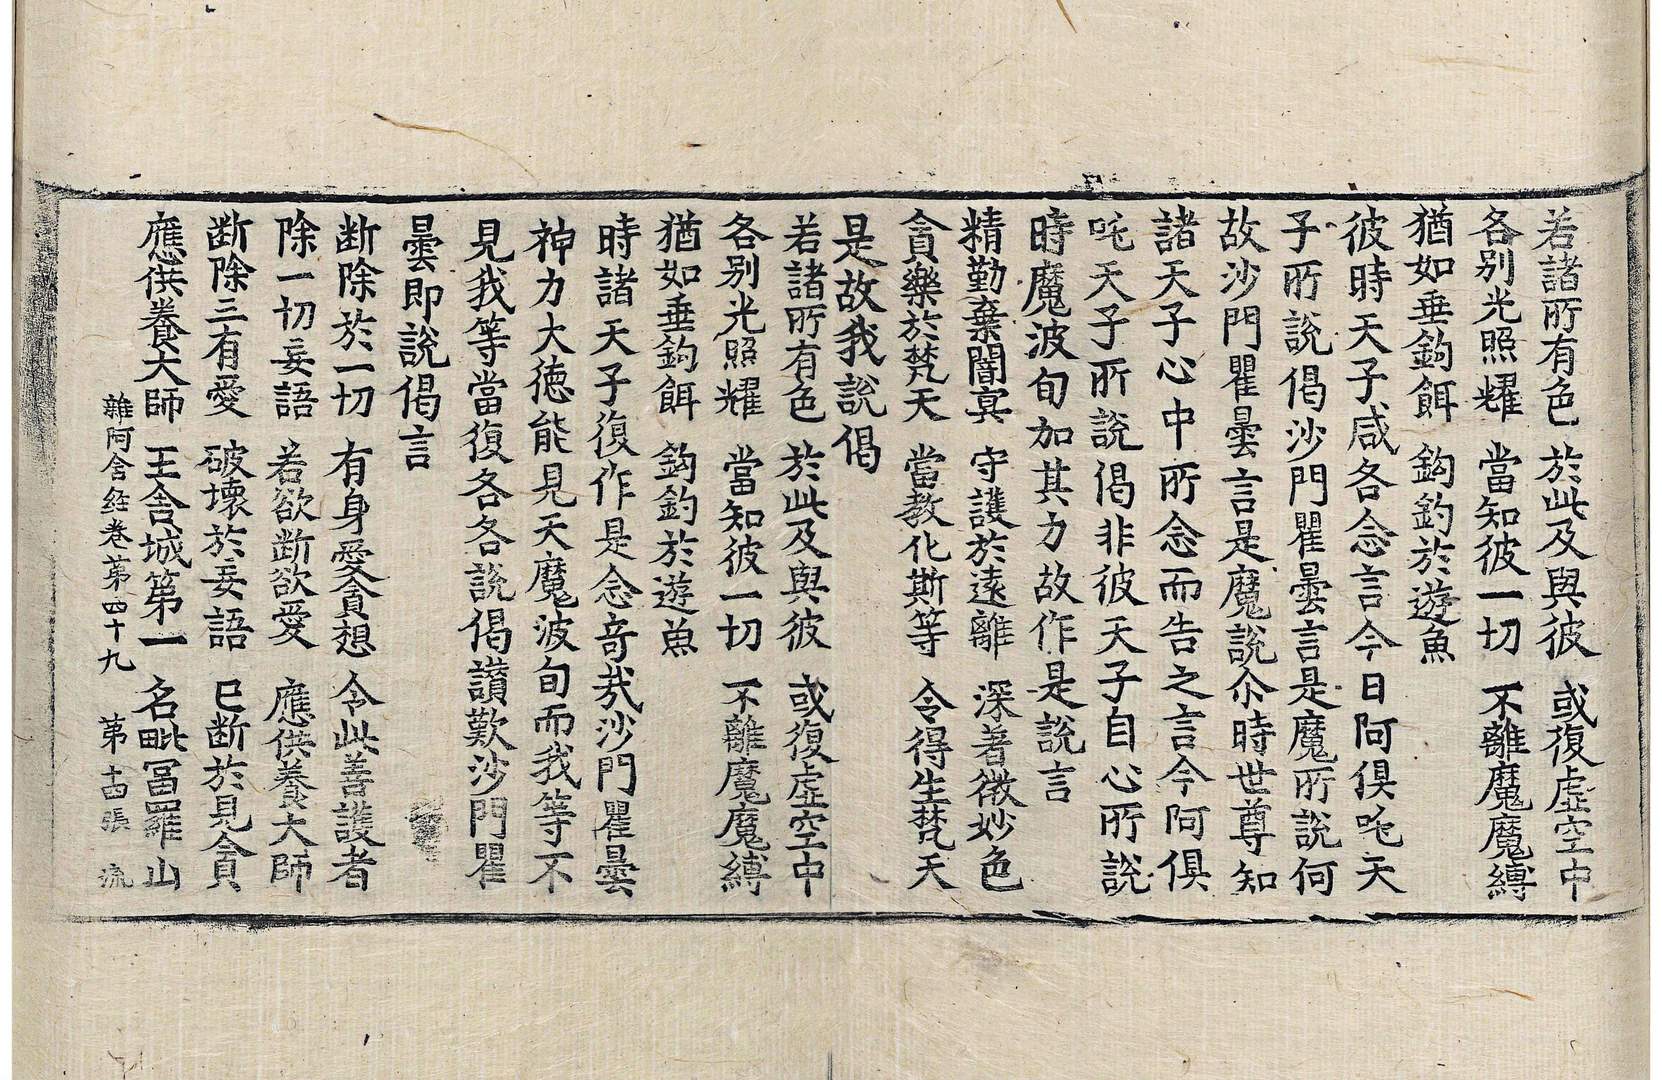 若諸所有色　於此及與彼　或復虛空中
各别光照耀　當知彼一切　不離魔魔縛
猶如垂鉤餌　鉤釣於遊魚
彼時天子咸各念言今日阿俱吒天
子所說偈沙門瞿曇言是魔所說何
故沙門瞿曇言是魔說尒時世尊知
諸天子心中所念而告之言今阿俱
吒天子所說偈非彼天子自心所說
時魔波旬加其力故作是說言
精勤棄闇冥　守護於遠離　深著微妙色
貪樂於梵天　當教化斯等　令得生梵天
是故我說偈
若諸所有色　於此及與彼　或復虛空中
各别光照耀　當知彼一切　不離魔魔縛
猶如垂鉤餌　鉤釣於遊魚
時諸天子復作是念奇㢤沙門瞿曇
神力大德能見天魔波旬而我等不
見我等當復各各說偈讃歎沙門瞿
曇即說偈言
断除於一切　有身愛貪想　令此善護者
除一切妄語　若欲断欲愛　應供養大師
断除三有愛　破壞於妄語　已断於見貪
應供養大師　王舍城第一　名毗冨羅山
雜阿含経卷第四十九　第十四張　流